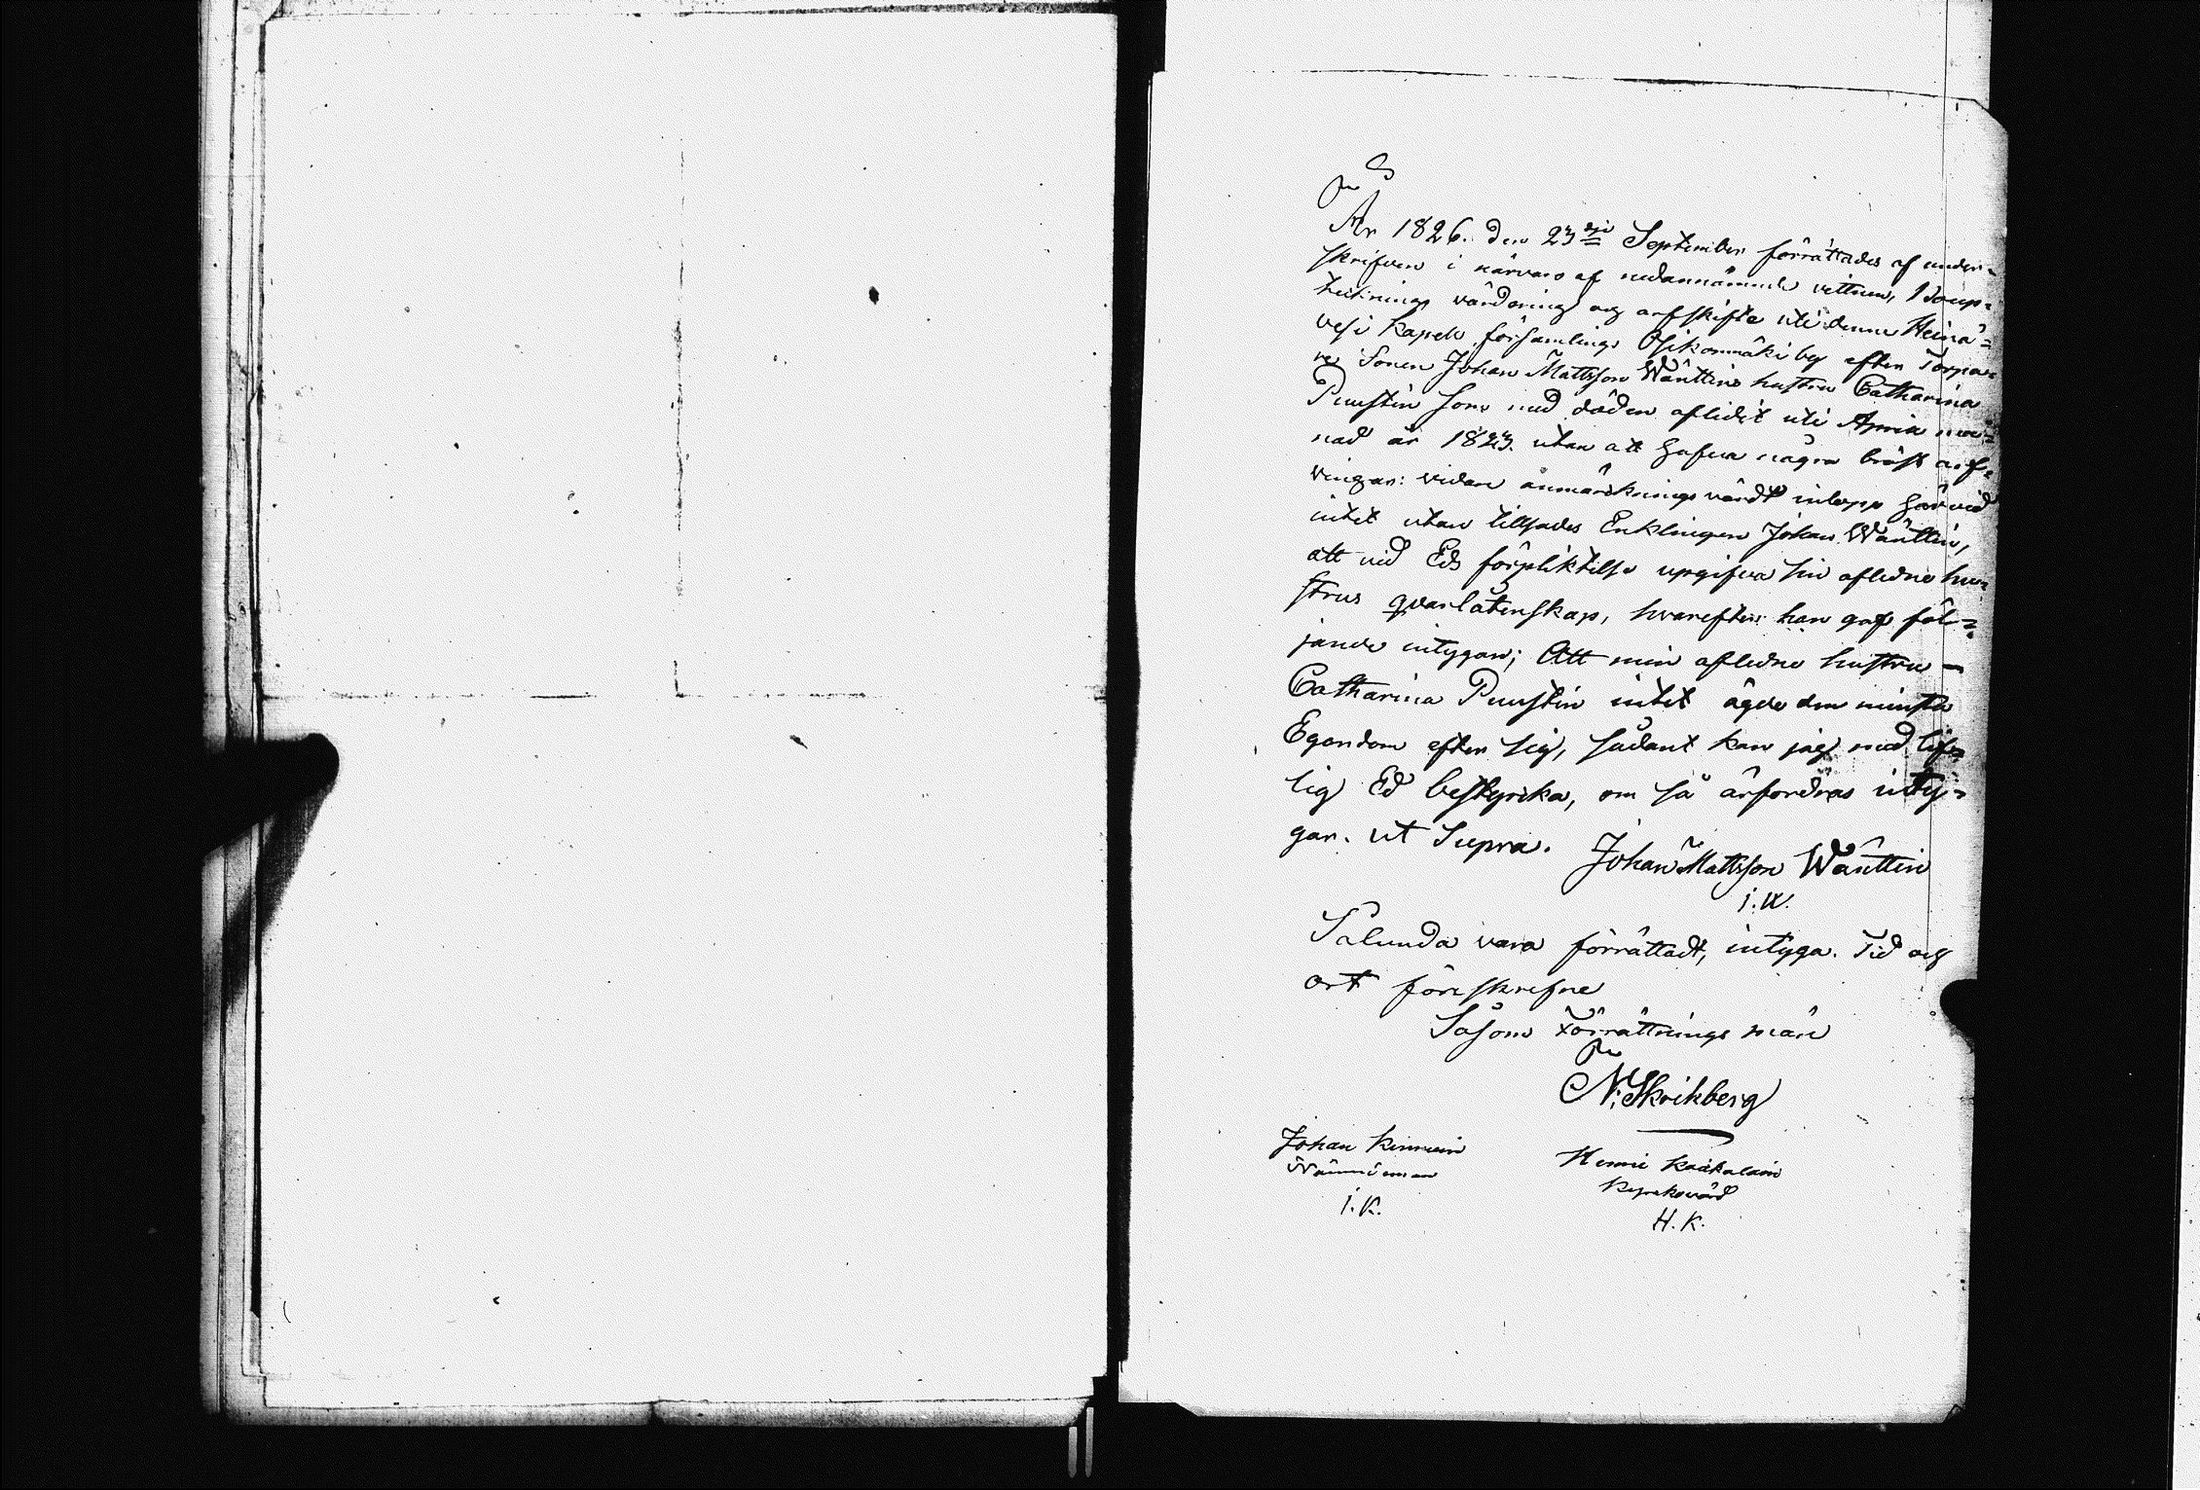 År 1826. den 23dje September förrättades af under=
skrifven i närvaro af nedannämnde vittnen, Boup=
teknings värdering og arfskifte uti denne Heinä=
vesi Kapell församlings Osikonmäki by efter Torpa=
re Sonen Johan Mattsson Wänttins hustru Catharina
Puustin som med döden aflidit uti Aprill må=
nad år 1823. utan att hafva några bröst arf=
vingar: vidare anmärknings värdt inlopp härvid
intet utan tillsades Enklingen Johan Wänttin,
att vid Eds förpliktelse upgifva sin aflidne hu=
strus qvarlåtenskap, hvarefter han gaf föl=
jande intygan; Att min aflidne hustru
Catharina Puustin intet ägde den minsta
Egendom efter sig, sådant kan jag med lif=
lig Ed bestyrka, om så ärfordras inty=
gar. ut Supra. Johan Mattsson Wänttin
I.W.
Sålunda vara förrättadt, intyga. Tid och
ort föreskrefne
Såsom Förrättnings män
N. Skrikberg
Johan Kinnuin
Nämndeman
I.K.
Henric Kaikalain
Kyrkovärd
H.K.